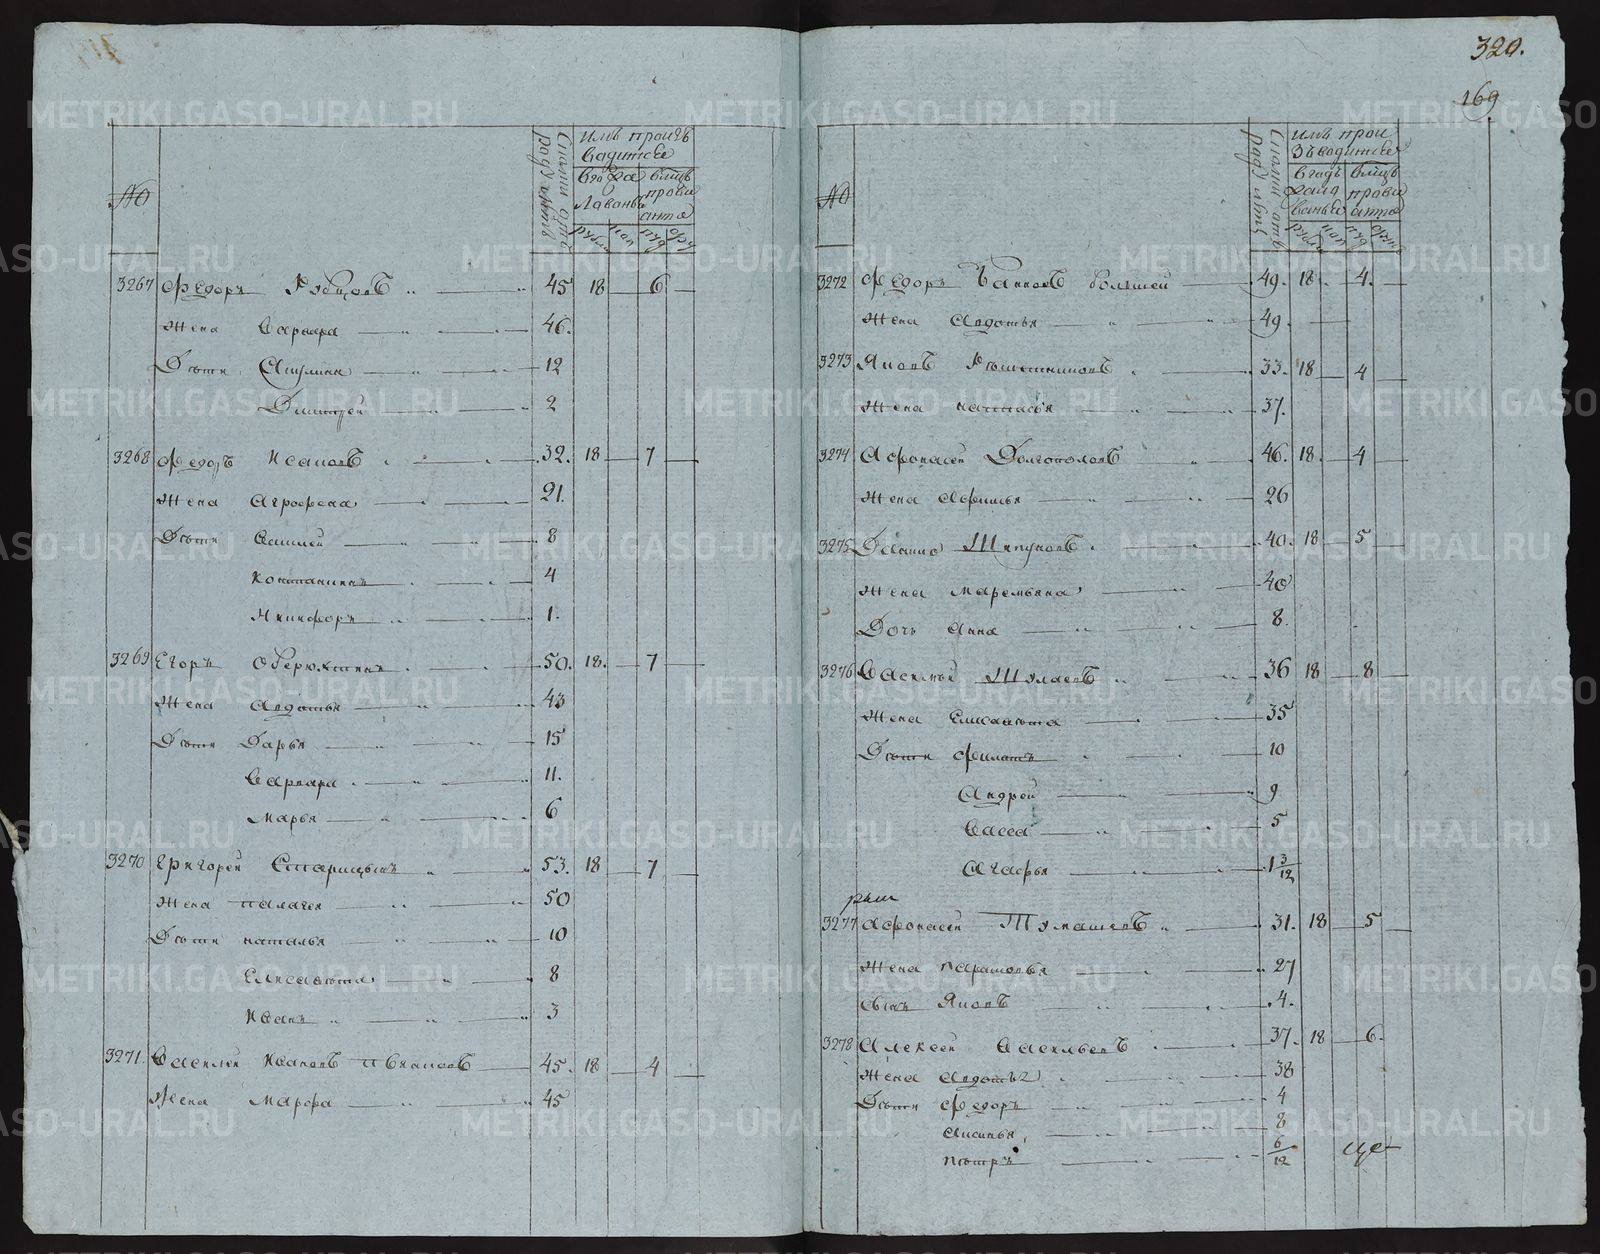 320.
169
METRIKI.GASO-URAL.RU
№
Сколко отъ роду летъ
имъ произъ
вадитсе
вго
лаваньe
вмцъ
прови
анта
рубли
коп
пуд
фун
3267 Федоръ 45 18 6
жена варвара 46.
Дети Акулина 12
Дмитрей 2
3268 Федоръ Исаковъ 32. 18 7
жена Аграфена 21.
Дети 8
Костантинъ 4
Никифоръ 1.
3269 Егоръ Оберюхтинъ 50. 18. 7
жена Авдотья 43
Дети Дарья 15
Варвара 11.
Марья 6
3270 Григорей Старицынъ 53. 18 7
жена палагея 50
Дети наталья 10
Елисавета 8
Иванъ 3
3271. Василей Ивановъ 45. 18 4
жена Марфа 45
№
Сколко отъ роду летъ
имъ прои
зъводитсе
вмцъ
прови
анта
рубли
коп
пуд
фун
3272 Федоръ большей 49. 18. 4.
жена Авдотья 49.
3273 Яковъ Решетниковъ 33. 18 4
жена настасья 37.
3274 Афонасей Долгополовъ 46. 18. 4
жена Афимья 26
3275 Данило Шкуновъ 40. 18 5
жена маремьяна 40
Дочь Анна 8.
3276 Василей 36 18 8
жена Елисавета 35
Дети Филатъ 10
Андрей 9
Васса 5
Агафья 1 3/12
3277 Афонасей Тумашевъ 31. 18 5
жена парасковья 27
сынъ Яковъ 4.
3278 Алексей Васильевъ 37. 18 6.
жена Авдотья 38
Дети Федоръ 4
Аксинья 8
петръ 6/12